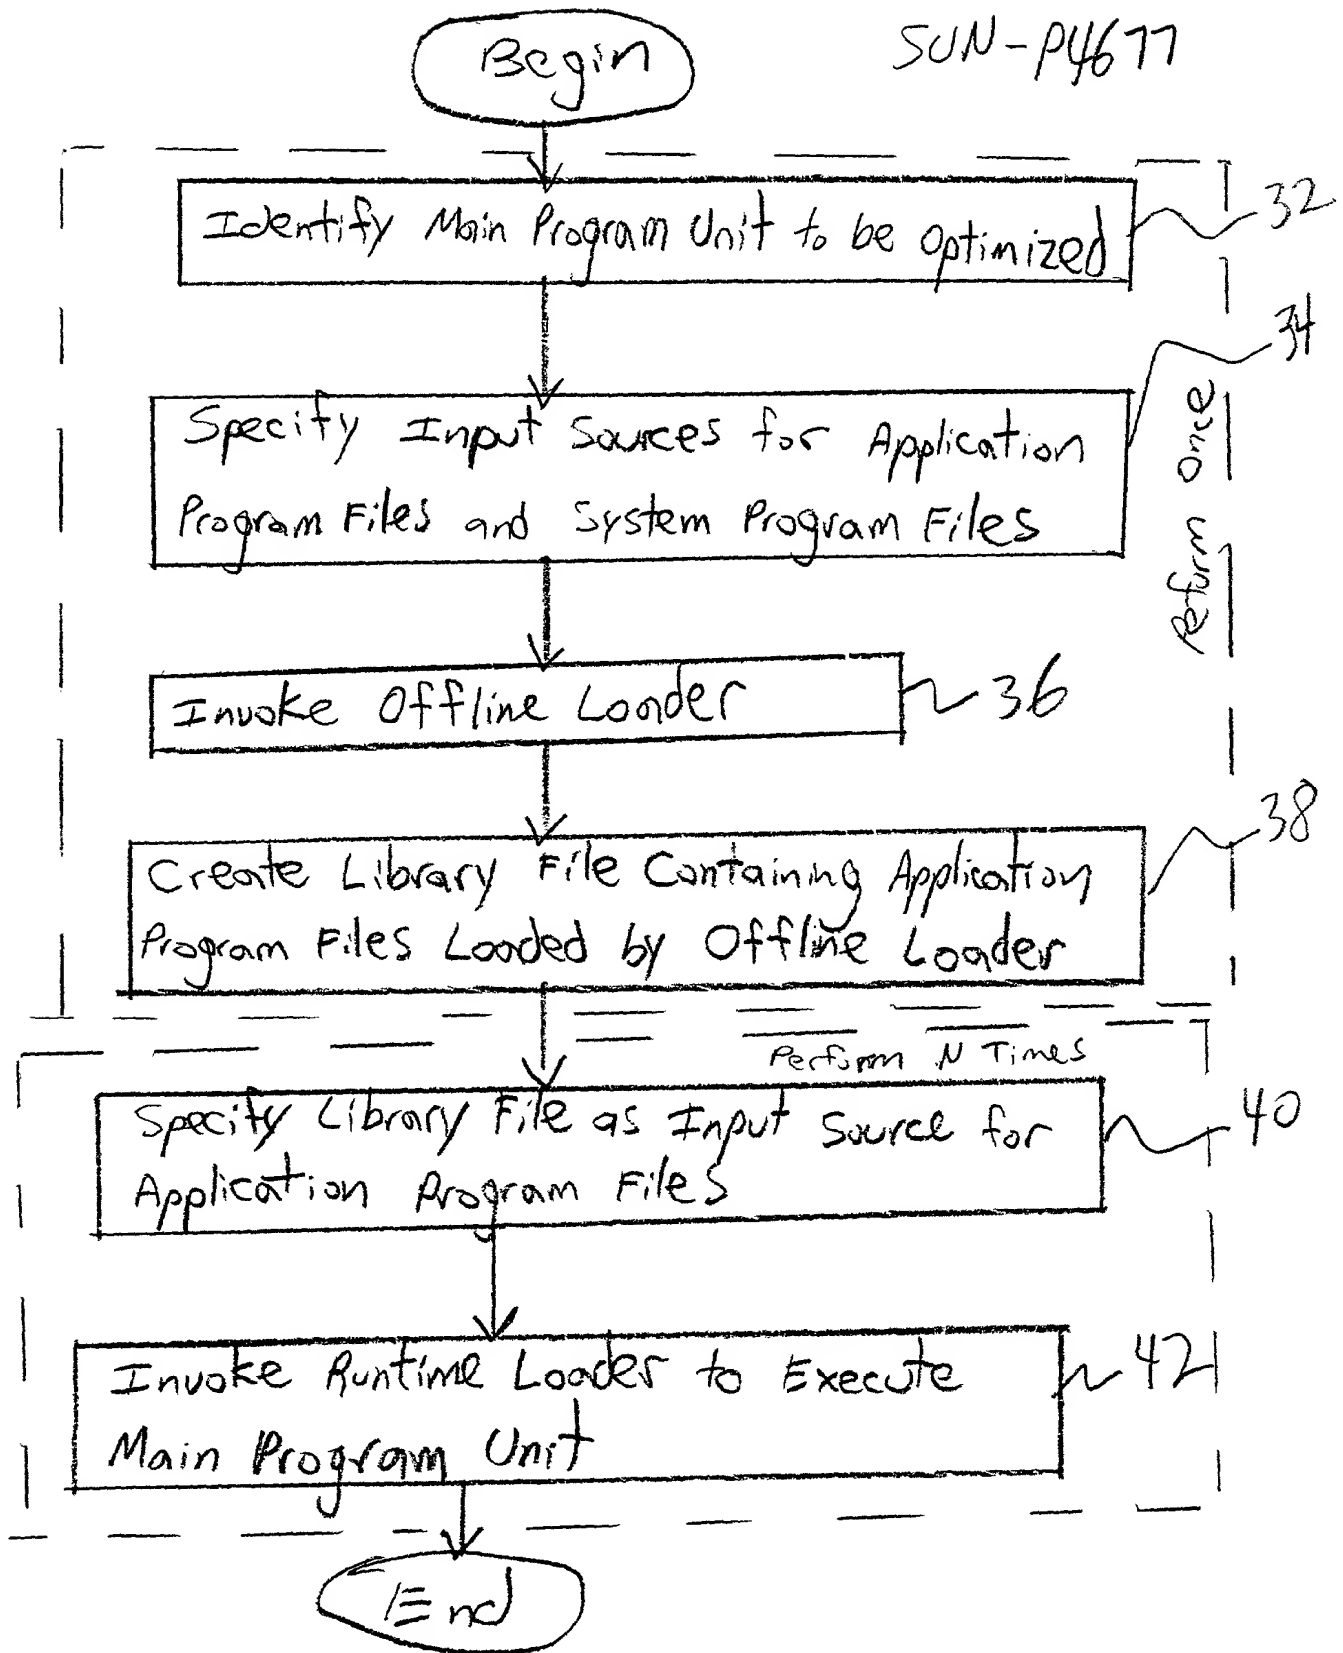 Begin
SUN-P4677
Identify Main Program Unit to be Optimized
32
34
Specify Input Sources for Application
Program Files and System Program Files
Perform Once
Invoke Offline Loader
36
38
Create Library File Containing Application
Program Files Loaded by Offline Loader
Perform N Times
Specify Library File as Input Source for
40
Application Program Files
Invoke Runtime Loader to Execute
42
Main Program Unit
End